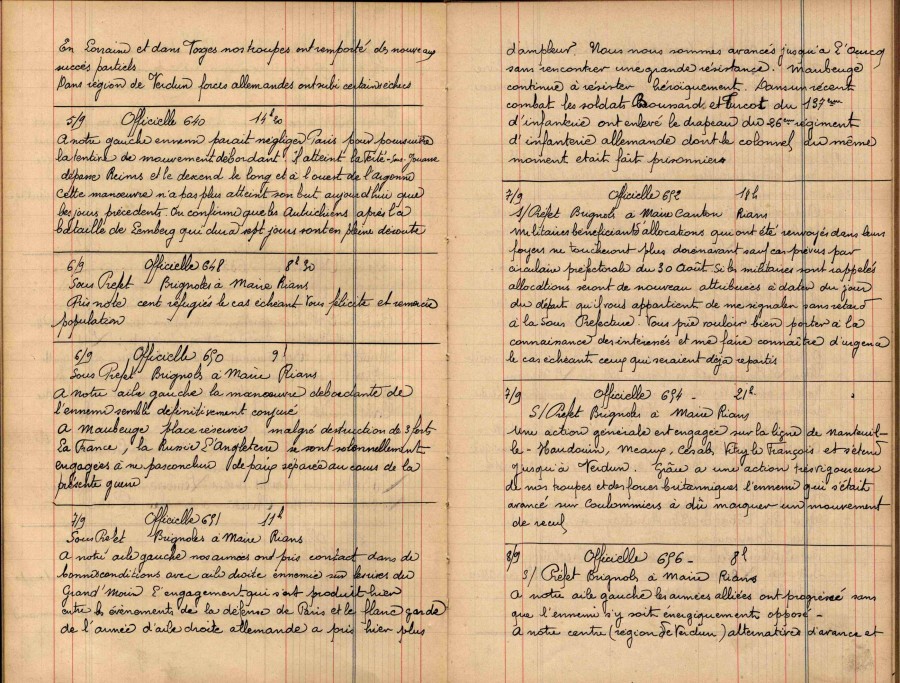 En Lorraine et dans Vosges nos troupes ont remporté de nouveaux
succès partiels
Dans région de Verdun forces allemandes ont subi certains échecs
5/9 Officielle 640 14h30
A notre gauche ennemi parait négliger Paris pour poursuivre
la tentive de mouvement débordant. Il atteint la Ferté-sous-Jouarre
dépasse Reims et le descend le long et à l'ouest de l'Argonne
Cette manœuvre n'a pas plus atteint son but aujourd'hui que
les jours précédents. On confirme que les Autrichiens après la
bataille de Lemberg qui dura sept jours sont en pleine déroute
6/9 Officielle 648 8h30
Sous Prefet Brignoles à Maire Rians
Pris note cent réfugiés le cas échéant Vous félicite et remercie
population
6/9 Officielle 650 9h
Sous Prefet Brignols à Maire Rians
A notre aile gauche la manœuvre débordante de
l'ennemi semble définitivement conjuré
A Maubeuge place réservée malgré destruction de 3 forts
La France, la Russie L'Angleterre se sont solennellement
engagées à ne pas conclure de paix séparée au cours de la
présente guerre
7/9 Officielle 651 11h
Sous Prefet Brignoles à Maire Rians
A notre aile gauche nos armées ont pris contact dans de
bonnes conditions avec aile droite ennemie sur les rives du
Grand Morin L'engagement qui s'est produit hier
entre les évènements de la défense de Paris et le flanc garde
de l'armée d'aile droite allemande a pris hier plus
d'ampleur. Nous nous sommes avancés jusqu'à l'Ourcq
sans rencontrer une grande résistance. Maubeuge
continue à résister héroïquement. Dans un récent
combat les soldats Bousard et Turcot du 137ème
d'infanterie ont enlevé le drapeau du 26ème régiment
d'infanterie allemande dont le colonnel du même
moment etait fait prisonniers
7/9 Officielle 652 18h
S/Préfet Brignols à Maire Canton Rians
Militaires bénéficiant allocations qui ont été renvoyés dans leurs
foyers ne toucheront plus dorénavant sauf cas prévus par
circulaire préfectorale du 30 Août. Si les militaires sont rappelés
allocations seront de nouveau attribuées à dater du jour
du départ qu'il vous appartient de me signaler sans retard
à la Sous Prefecture. Vous prie vouloir bien porter à la
connaissance des interessés et me faire connaître d'urgence
le cas échéant ceux qui seraient déjà repartis
7/9 Officielle 654 - 21h
S/Préfet Brignoles à Maire Rians
Une action générale est engagée sur la ligne de Nanteuil-
le-Haudouin, Meaux, Césab, Vitry le François et s'étend
jusqu'à Verdun. Grâce à une action très vigoureuse
de nos troupes et des forces britanniques l'ennemi qui s'était
avancé sur Coulommiers a dû marquer un mouvement
de recul
8/9 Officielle 656 - 8h
S/ Préfet Brignols à Maire Rians
A notre aile gauche les armées alliées ont progressé sans
que l'ennemi s'y soit énergiquement opposé -
A notre centre (région de Verdun) alternatives d'avance et